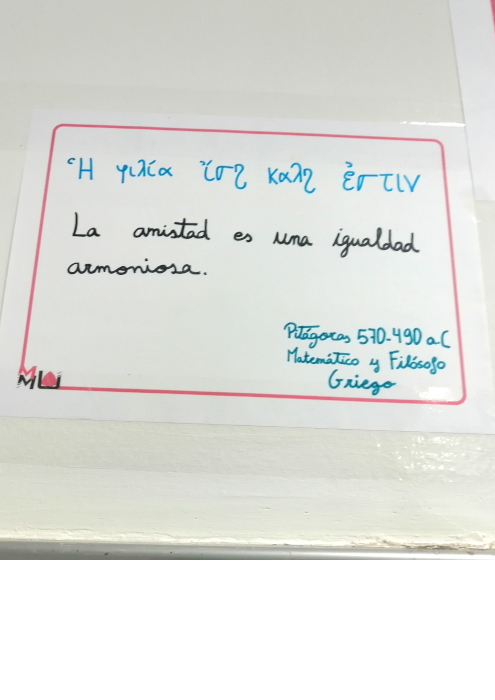 Ἡ φιλία ἴση καλη ἐστιν
La amistad es una igualdad
armoniosa.
Pitágoras 570-490 a.C
Matemático y Filósofo
Griego